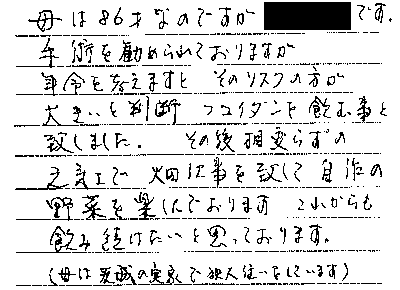 母は86才なのですが です。
手術を勧められておりますが
年令を考えますと そのリスクの方が
大きいと判断 フコイダンを飲む事と
致しました。 その後相変らずの
元気で 畑仕事を致して 自作の
野菜を楽しんでおります これからも
飲み続けたいと思っております。
(母は茨城の実家で独人住いをしています)